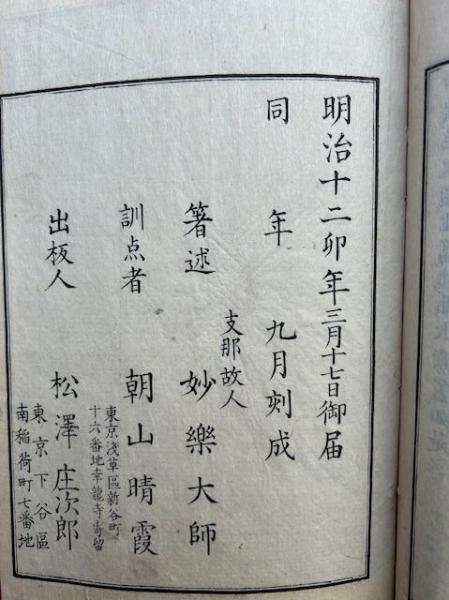 明治十二卯年三月十七日御届
同 年 九月刻成
支那故人
著述 妙樂大師
訓点者 朝山晴霞
東京淺草區新谷町
十六番地幸龍寺寄留
出板人 松澤庄次郎
東京下谷區
南稲荷町七番地